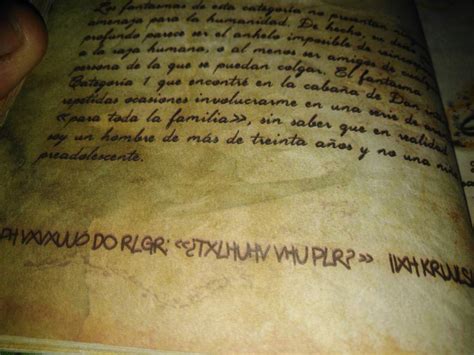 Los fantasmas de esta categoría no presentan nin
amenaza para la humanidad. De hecho, su deseo
profundo parece ser el anhelo imposible de reincorpo
a la raza humana, o al menos ser amigos de cualqu
persona de la que se puedan colgar. El fantasma
Categoría 1 que encontré en la cabaña de Dan
repetidas ocasiones involucrarme en una serie de
«para toda la familia», sin saber que en realidad
soy un hombre de más de treinta años y no una niña
preadolescente.
PH VXVXUUÓ DO RLGR: «¿TXLHUHV VHU PLR?» ¡¡XH KRUULS